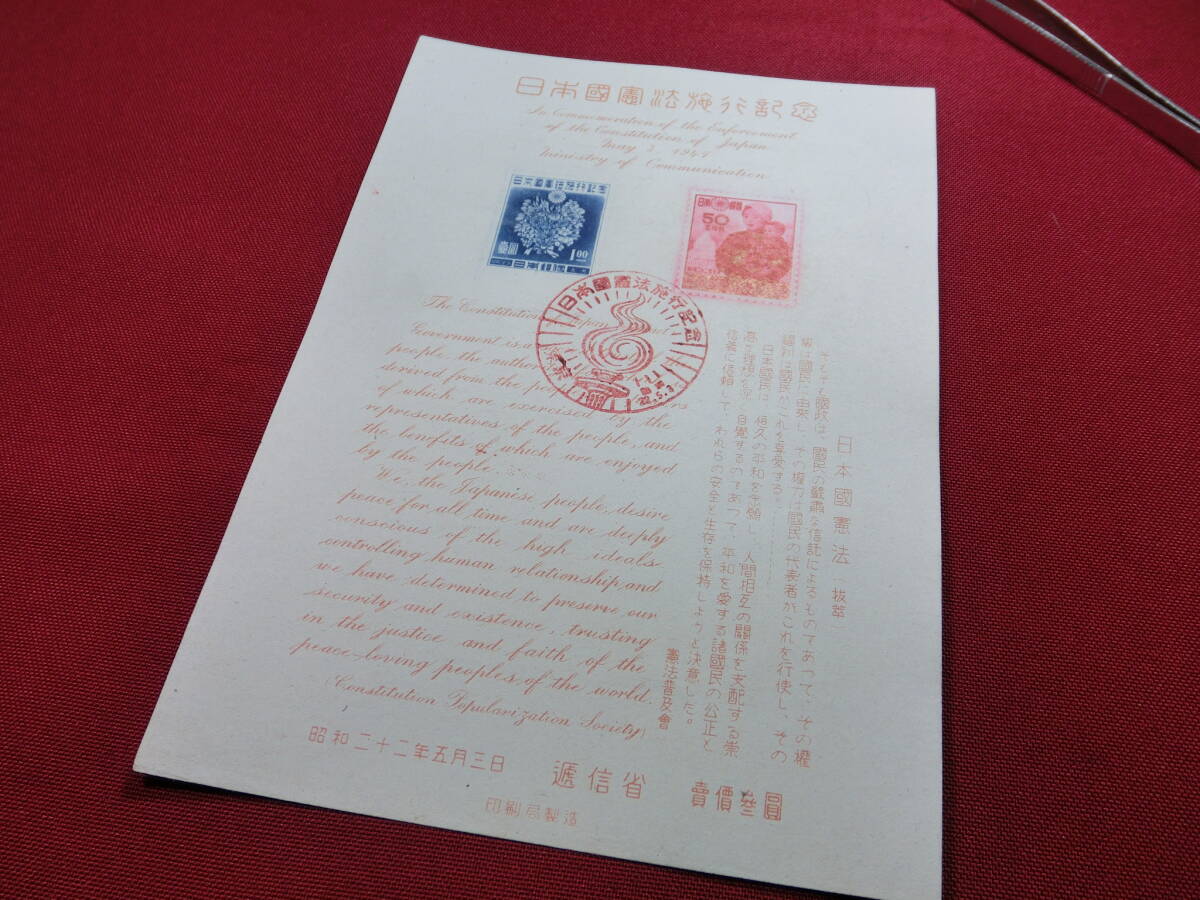 日本國憲法施行記念
In Commemoration of the Enforcement
of the Constitution of Japan
May 3, 1947
Ministry of Communication
日本國憲法施行記念
壹圓
1.00
日本郵便
日本郵便
50
日本國憲法施行記念
東京
22.5.3
The Constitution
Government is a
people, the author
derived from the people
of which are exercised by the
representatives of the people, and
the benefits of which are enjoyed
by the people.
We, the Japanese people, desire
peace for all time and are deeply
conscious of the high ideals
controlling human relationship, and
we have determined to preserve our
security and existence, trusting
in the justice and faith of the
peace-loving peoples of the world.
(Constitution Popularization Society)
日本國憲法 (拔萃)
そもそも國政は、國民の嚴肅な信託によるものであつて、その權
威は國民に由來し、その權力は國民の代表者がこれを行使し、その
福利は國民がこれを享受する。
日本國民は、恒久の平和を念願し、人間相互の關係を支配する崇
高な理想を深く自覺するのであつて、平和を愛する諸國民の公正と
信義に信頼して、われらの安全と生存を保持しようと決意した。
憲法普及會
昭和二十二年五月三日 遞信省 賣價參圓
印刷局製造